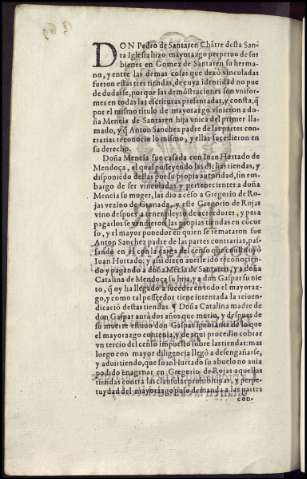 DON Pedro de Santaren Chãtre desta San-
ta Iglesia hizo mayorazgo perpetuo de sus
bienes en Gomez de Santarẽ su herma-
no, y entre las demas cosas que dexò vinculadas
fueron estas tres tiendas, de cuya identidad no pue-
de dudarse, porque las demostraciones son vnifor-
mes en todas las escrituras presentadas, y consta, q̃
por el mismo titulo de mayorazgo vinieron a doña
Mencia de Santaren hija vnica del primer lla-
mado, y q̃ Anton Sanchez padre de las partes con-
trarias reconocie lo mismo, y ellas sucedieron en
su derecho.
Doña Mencia fue casada con Iuan Hurtado de
Mendoça, el qual posseyendo las dichas tiendas, y
disponiẽdo dellas por su propia autoridad, sin em-
bargo de ser vinculadas y pertenecientes a doña
Mencia su muger, las dio a censo a Gregorio de Ro-
jas vezino de Granada, y este Gregorio de Rojas
vino despues a pleyto de acreedores, y para
pagarlos se vendieron las propias tiendas en cõcur-
so, y el mayor ponedor en quien se remataron fue
Anton Sanchez padre de las partes contrarias, pas-
sando en el con la carga del censo que
Iuan Hurtado, y assi dizen auerle ido reconociẽ-
do y pagando a doña Mẽcia de Santarẽ, y a doña
Catalina de Mendoça su hija, y a don Gaspar su nie-
to, q̃ oy ha llegado a suceder en todo el mayoraz-
go, y como tal posseedor tiene intentada la reiuin-
dicaciõ destas tiendas. ¶ Doña Catalina madre de
don Gaspar aurà dos años que murio, y despues de
su muerte estuuo don Gaspar ignorante de lo que
el mayorazgo contenia, y de aqui procedio cobrar
vn tercio del censo impuesto sobre las tiendas: mas
luego con mayor diligencia llegò a desengañarse,
y aduirtiendo, que Iuan Hurtado su abuelo no auia
podido enagenar en Gregorio de Rojas aquellas
tiendas contra las clausulas prohibitiuas, y perpe-
tuydad del mayorazgo, puso demanda a las partes
con-